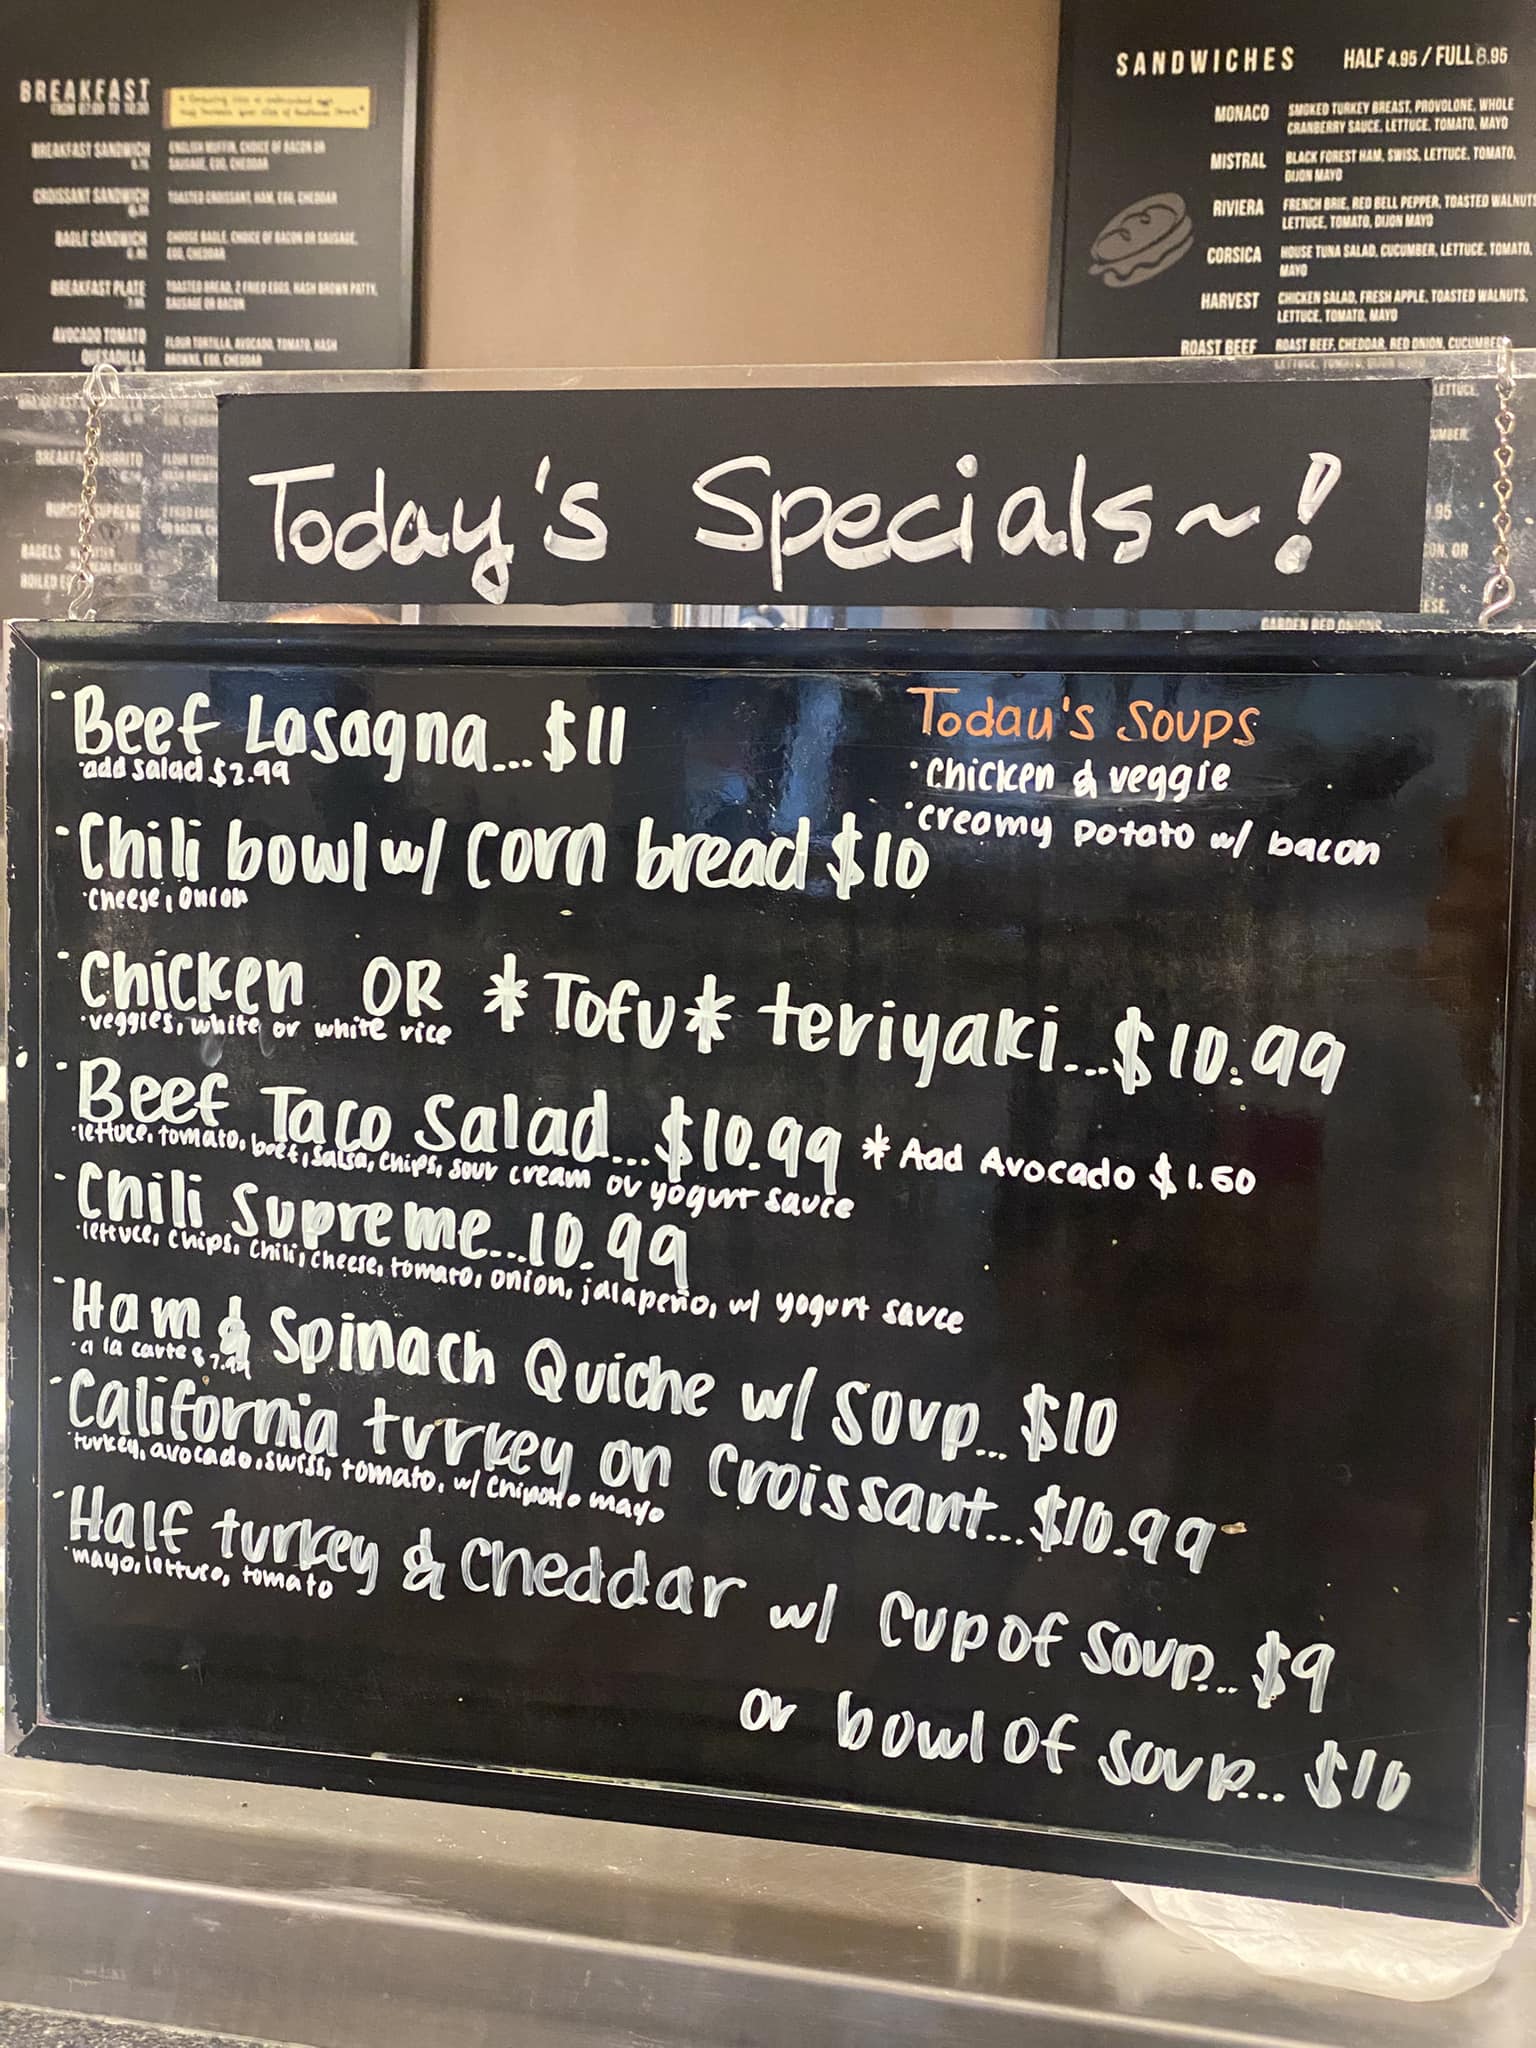 BREAKFAST
FROM 07:00 TO 10:30
BREAKFAST SANDWICH
ENGLISH MUFFIN, CHOICE OF BACON OR
SAUSAGE, EGG, CHEDDAR
CROISSANT SANDWICH
TOASTED CROISSANT, HAM, EGG, CHEDDAR
BAGLE SANDWICH
CHOOSE BAGLE, CHOICE OF BACON OR SAUSAGE,
EGG, CHEDDAR
BREAKFAST PLATE
TOASTED BREAD, 2 FRIED EGGS, HASH BROWN PATTY,
SAUSAGE OR BACON
AVOCADO TOMATO
QUESADILLA
FLOUR TORTILLA, AVOCADO, TOMATO, HASH
BROWNS, EGG, CHEDDAR
BAGELS
SANDWICHES HALF 4.95 / FULL 8.95
MONACO
SMOKED TURKEY BREAST, PROVOLONE, WHOLE
CRANBERRY SAUCE, LETTUCE, TOMATO, MAYO
MISTRAL
BLACK FOREST HAM, SWISS, LETTUCE, TOMATO,
DIJON MAYO
RIVIERA
FRENCH BRIE, RED BELL PEPPER, TOASTED WALNUTS
LETTUCE, TOMATO, DIJON MAYO
CORSICA
HOUSE TUNA SALAD, CUCUMBER, LETTUCE, TOMATO,
MAYO
HARVEST
CHICKEN SALAD, FRESH APPLE, TOASTED WALNUTS,
LETTUCE, TOMATO, MAYO
ROAST BEEF
ROAST BEEF, CHEDDAR, RED ONION, CUCUMBER
LETTUCE, TOMATO, DIJON MAYO
GARDEN RED ONIONS
Today's Specials~!
·Beef Lasagna...$11
·add salad $2.99
·Chili bowl w/ corn bread $10
·cheese, onion
·Chicken OR *Tofu* teriyaki...$10.99
·veggies, white or white rice
·Beef Taco Salad...$10.99 *Add Avocado $1.50
·lettuce, tomato, beef, salsa, chips, sour cream or yogurt sauce
·Chili Supreme...10.99
·lettuce, chips, chili, cheese, tomato, onion, jalapeño, w/ yogurt sauce
·Ham & Spinach Quiche w/ soup...$10
·a la carte $7.99
·California turkey on Croissant...$10.99
·turkey, avocado, swiss, tomato, w/ chipotle mayo
·Half turkey & cheddar w/ cup of soup...$9
·mayo, lettuce, tomato
or bowl of soup...$10
Today's Soups
·chicken & veggie
·creamy potato w/ bacon